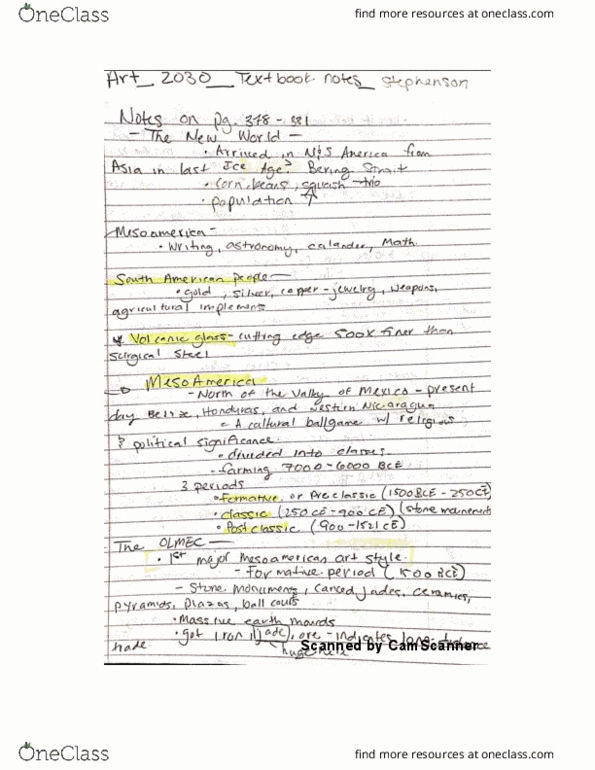 OneClass
find more resources at oneclass.com
Art_ 2030__Textbook notes_ Stephenson
Notes on pg. 378-381
- The New World -
• Arrived in N&S America from
Asia in last Ice Age? Bering Strait
• corn, beans, squash - trio
• population ↑
Mesoamerica -
• Writing, astronomy, calander, Math.
South American people -
• gold, silver, copper - jewelry, weapons,
agricultural implements
Volcanic glass - cutting edge 500x finer than
surgical steel
MesoAmerica
- North of the Valley of Mexico - present
day Belize, Honduras, and western Nicaragua
= A cultural ballgame w/ religious
& political significance.
• divided into classes
• farming 7000 - 6000 BCE
3 periods
• Formative or Preclassic (1500 BCE - 250 CE)
• classic (250 CE - 900 CE) (stone
• Postclassic (900 - 1521 CE)
The OLMEC -
• 1st major Mesoamerican art style.
- Formative period (1500 BCE)
- Stone monuments, Carved jades, ceramics,
pyramids, plazas, ball courts
• Massive earth mounds
• got iron (jade), ore - indicates long-distance
trade
huge here
Scanned by CamScanner
OneClass
find more resources at oneclass.com